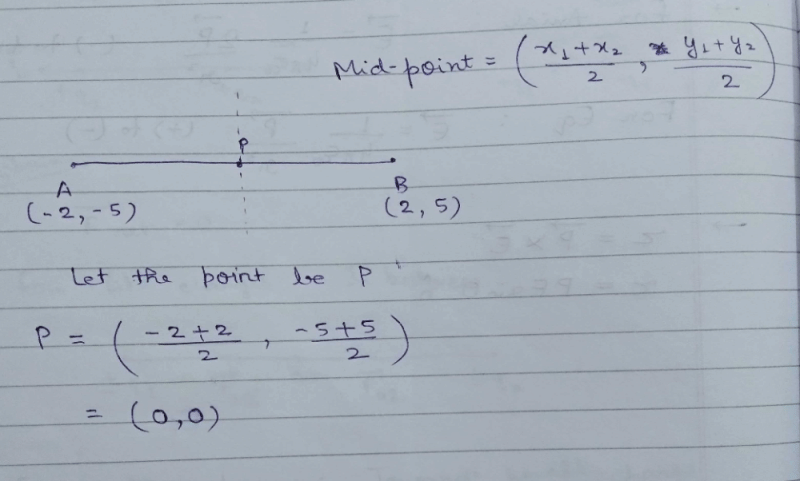 Mid-point = ( x₁+x₂ / 2 , y₁+y₂ / 2 )
P
A B
(-2, -5) (2, 5)
Let the point be P
P = ( -2+2 / 2 , -5+5 / 2 )
= (0,0)